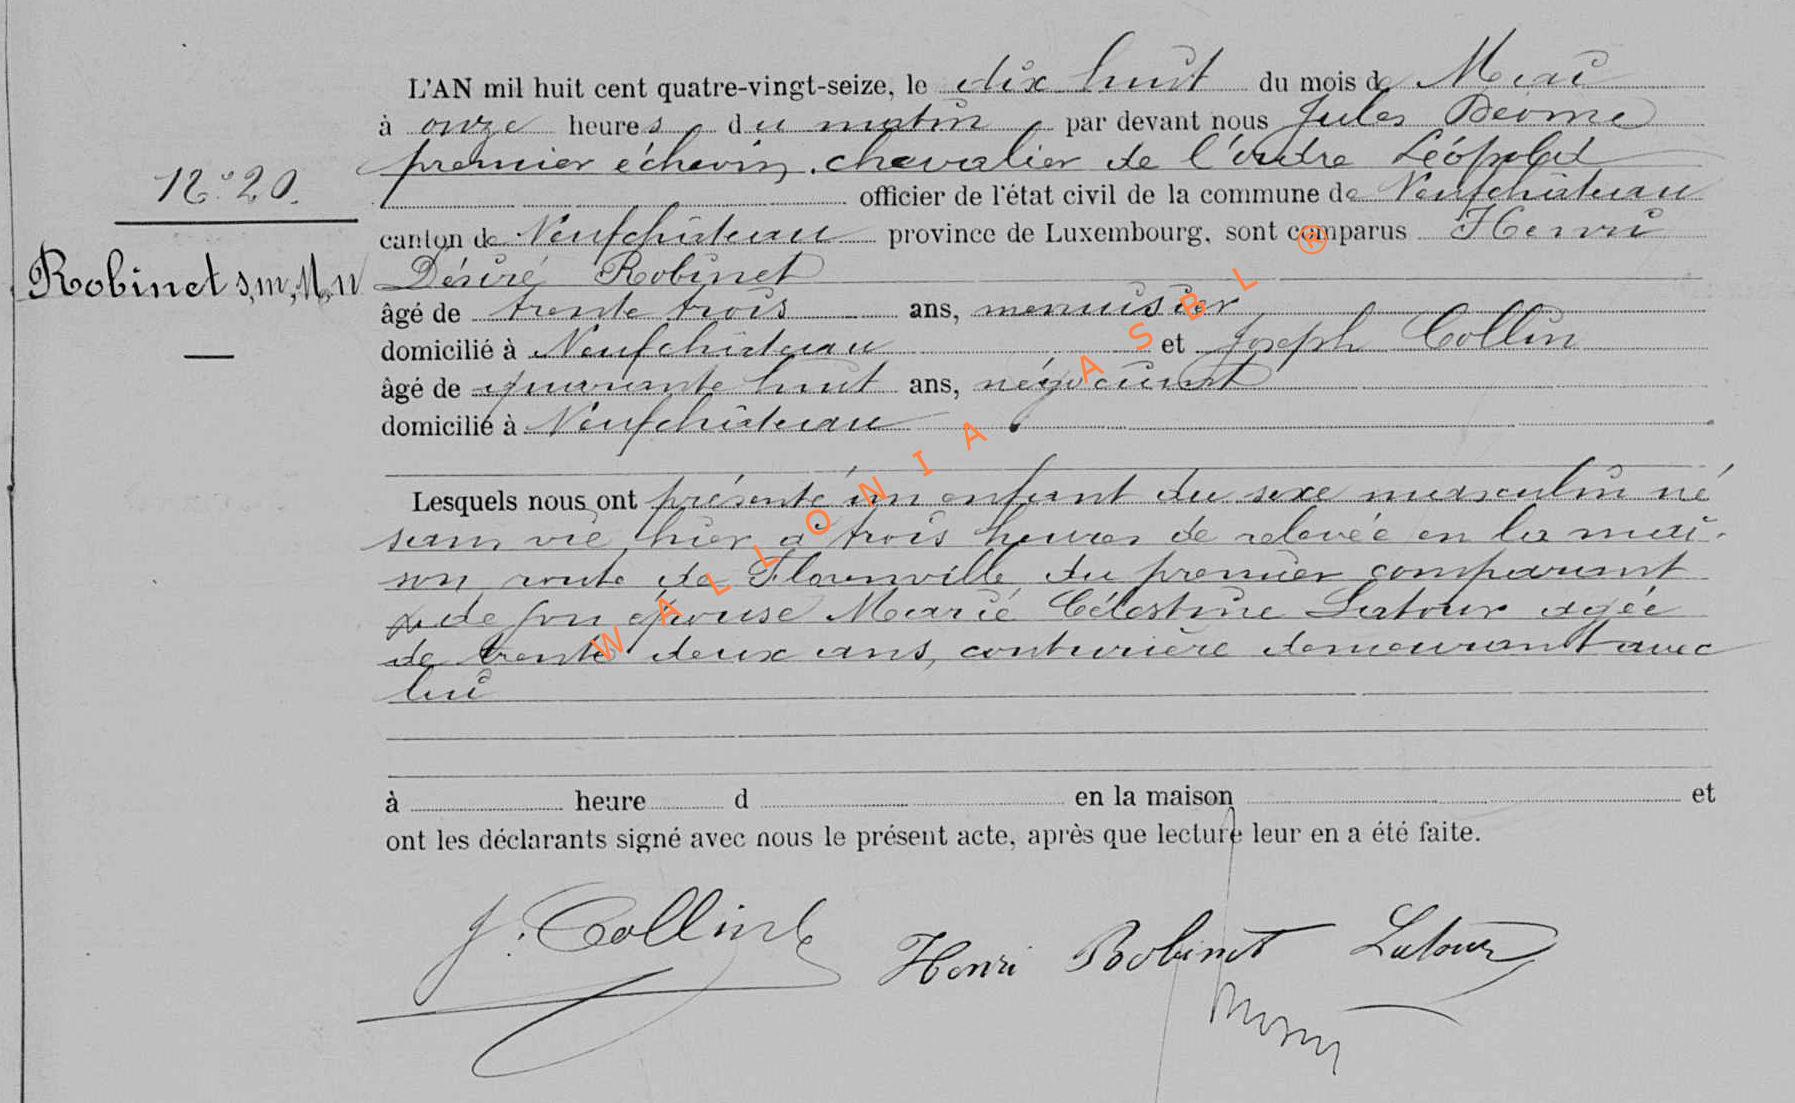 L'AN mil huit cent quatre-vingt-seize, le dix huit du mois de Mai
à onze heures du matin par devant nous Jules Deome
premier échevin, chevalier de l'ordre Léopold
N° 20.
officier de l'état civil de la commune de Neufchâteau
canton de Neufchâteau province de Luxembourg, sont comparus Henri
Robinet s, m, M, n
Désiré Robinet
âgé de trente trois ans, menuisier
domicilié à Neufchâteau et Joseph Collin
âgé de quarante huit ans, négociant
domicilié à Neufchâteau
Lesquels nous ont présenté un enfant du sexe masculin né
sans vie, hier à trois heures de relevée en la mai-
son, route de Florenville du premier comparant
& de son épouse Marie Célestine Latour agée
de trente deux ans, couturière demeurant avec
lui
à heure d en la maison et
ont les déclarants signé avec nous le présent acte, après que lecture leur en a été faite.
J. Collin Henri Robinet Latour
WALLONIA ASBL ®